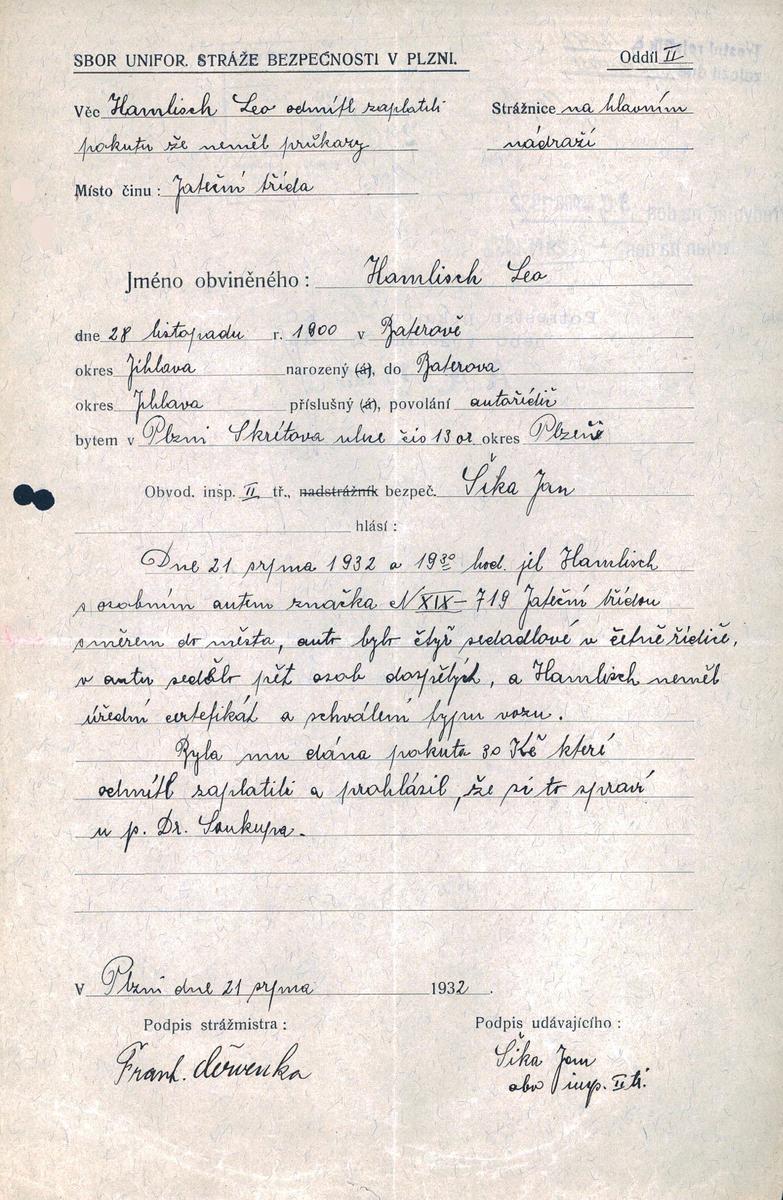 SBOR UNIFOR. STRÁŽE BEZPEČNOSTI V PLZNI. Oddíl II
Věc Hamlisch Leo odmítl zaplatiti Strážnice na hlavním
pokutu že neměl průkazy nádraží
Místo činu: Jateční třída
Jméno obviněného: Hamlisch Leo
dne 28 listopadu r. 1900 v
okres Jihlava narozený (á), do
okres Jhlava příslušný (á), povolání autořidič
bytem v Plzni Skrétova ulice čís 13 okres Plzeň
Obvod. insp. II tř., nadstrážník bezpeč. Šika Jan
hlásí:
Dne 21 srpna 1932 o 19³⁰ hod. jel Hamlisch
s osobním autem značka N XIX-719 Jateční třídou
směrem do města, auto bylo čtyř sedadlové v četně řidiče,
v autu sedělo pět osob dospělých, a Hamlisch neměl
úřední certefikát a schválení typu vozu.
Byla mu dána pokuta 30 Kč kterí
odmítl zaplatiti a prohlásil, že si to spraví
u p. Dr. Soukupa.
V Plzni dne 21 srpna 1932.
Podpis strážmistra: Podpis udávajícího:
Frant. Červenka Šika Jan
obv insp. II tř.